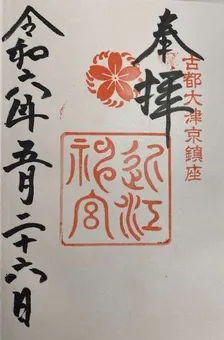 古都大津京鎮座
奉拝
近江
神宮
令和六年五月二十六日